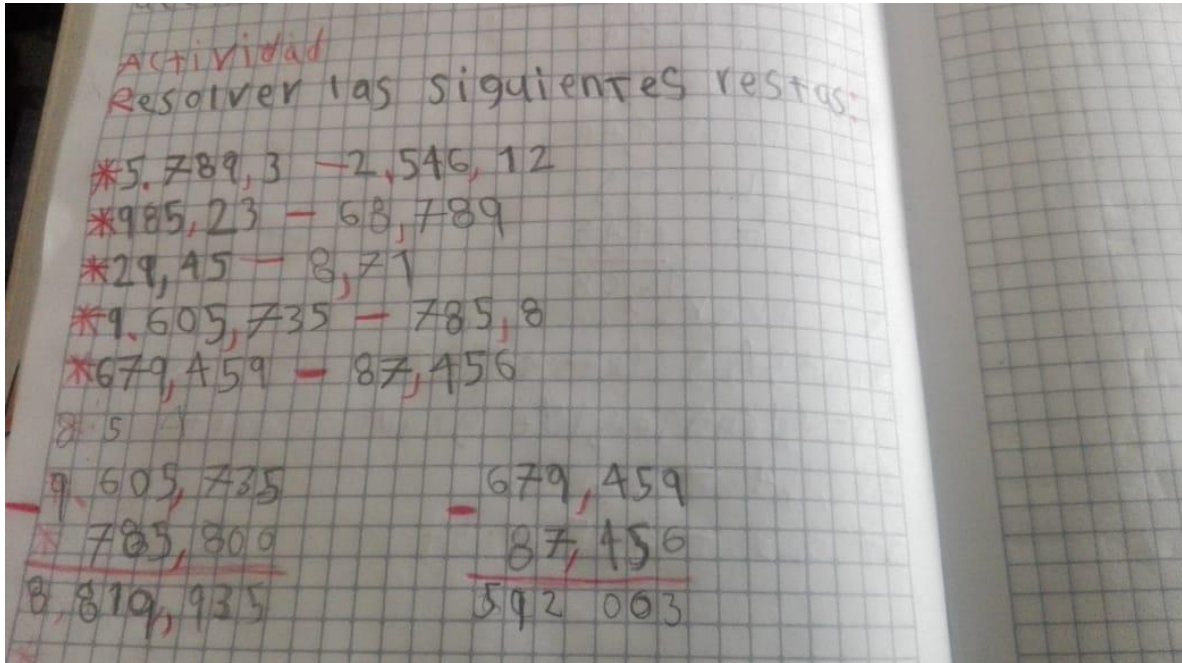 Actividad
Resolver las siguientes restas:
*5.789,3 - 2.546,12
*985,23 - 68,789
*29,45 - 8,71
*9.605,735 - 785,8
*679,459 - 87,456
8 5
9.605,735 679,459
- 785,800 - 87,456
8.819,935 592 003